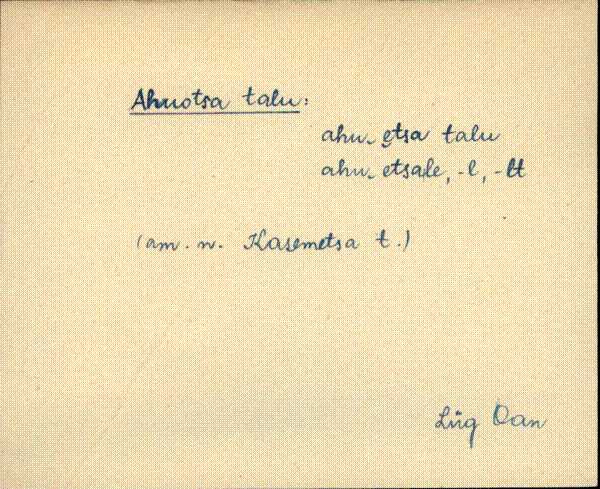 Ahuotsa talu:
ahu‿etsa talu
ahu‿etsale, -l, -lt
(am. n. Kasemetsa t.)
Lüg Oan